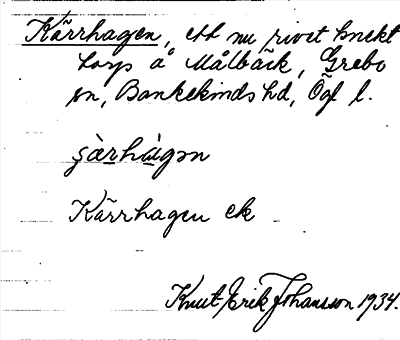 Kärrhagen, ett nu rivet knekt
torp å Målbäck, Grebo
sn, Bankekinds hd, Ögl l.
Kärrhagen ek
Knut-Erik Johansson 1934.